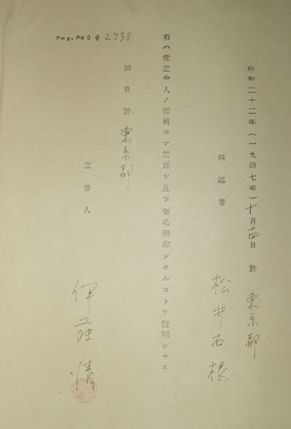 昭和二十二年(一九四七年)十月十四日 於 東京都
供述者 松井石根
右ハ當立會人ノ面前ニテ宣誓シ且ツ署名捺印シタルコトヲ證明シマス
同日於 東京都
立會人 伊藤清
Def. Doc. # 2738